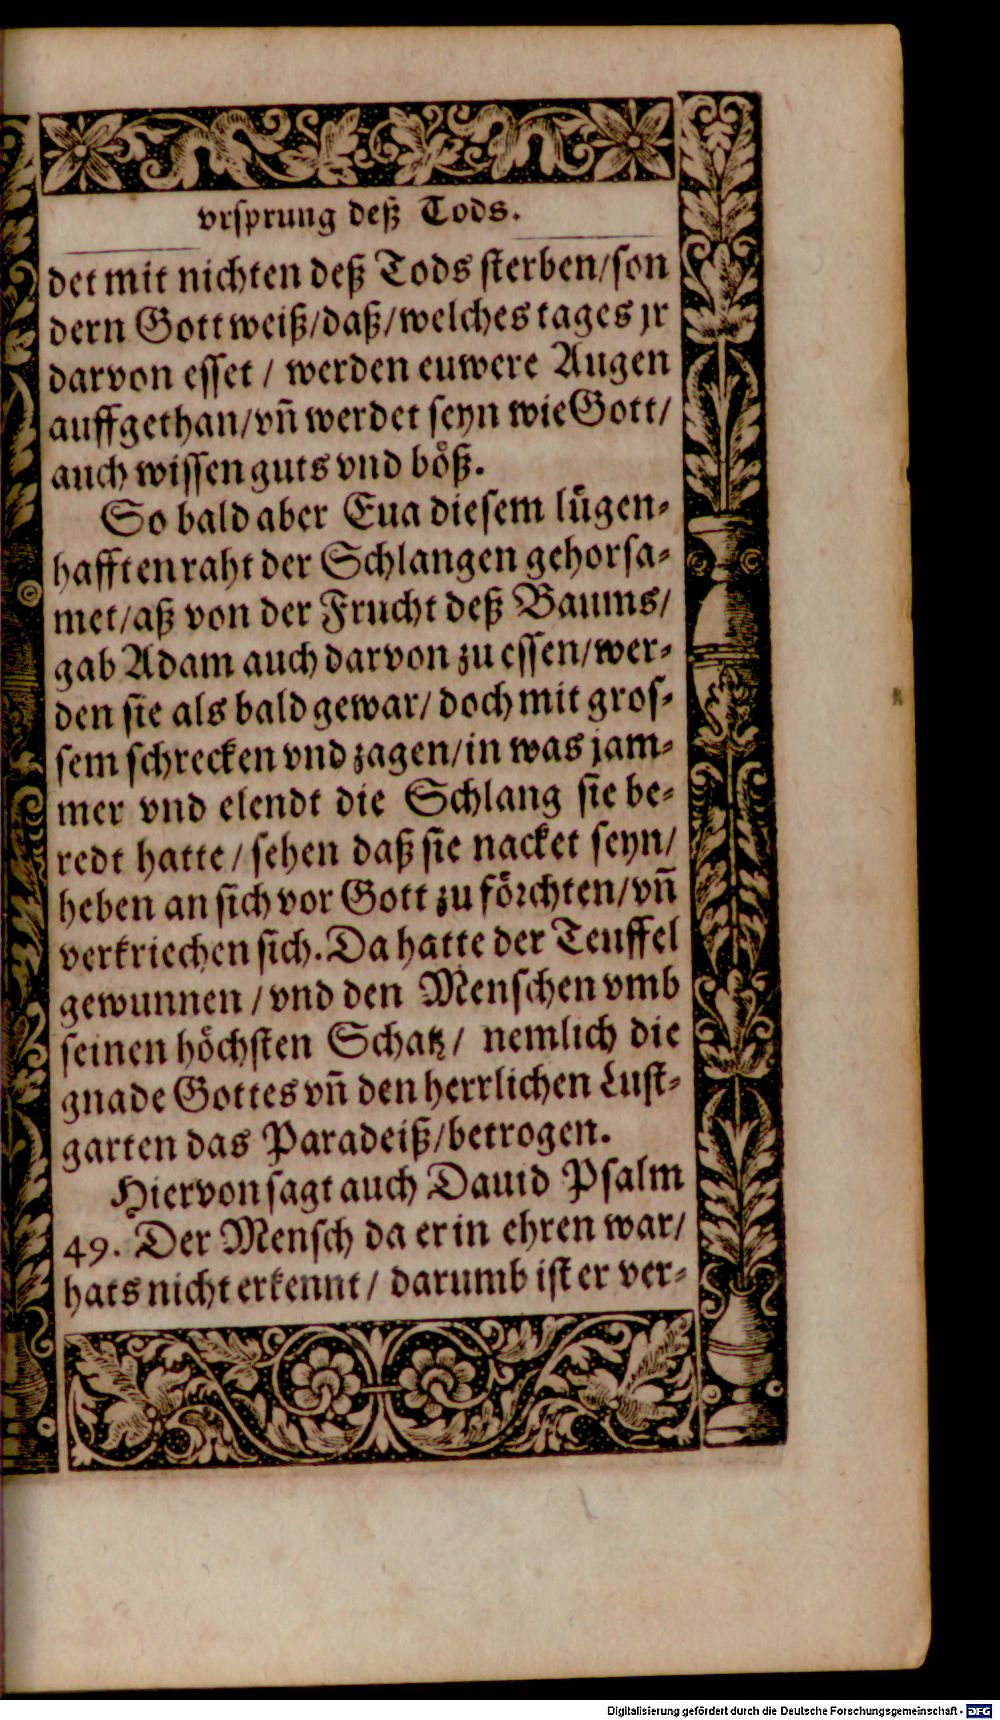 vrsprung deß Tods.
det mit nichten deß Tods sterben/son
dern Gott weiß/daß/welches tages jr
darvon esset / werden euwere Augen
auffgethan/vñ werdet seyn wie Gott/
auch wissen guts vnd bößͤ.
So bald aber Eua diesem luͤgen-
hafften raht der Schlangen gehorsa-
met/aß von der Frucht deß Baums/
gab Adam auch darvon zu essen/wer-
den sie als bald gewar/ doch mit gros-
sem schrecken vnd zagen/in was jam-
mer vnd elendt die Schlang sie be-
redt hatte / sehen daß sie nacket seyn/
heben an sich vor Gott zu foͤrchten/vñ
verkriechen sich. Da hatte der Teuffel
gewunnen / vnd den Menschen vmb
seinen hoͤchsten Schatz / nemlich die
gnade Gottes vñ den herrlichen Lust-
garten das Paradeiß/betrogen.
Hiervon sagt auch Dauid Psalm
49. Der Mensch da er in ehren war/
hats nicht erkennt / darumb ist er ver-
Digitalisierung gefördert durch die Deutsche Forschungsgemeinschaft - DFG